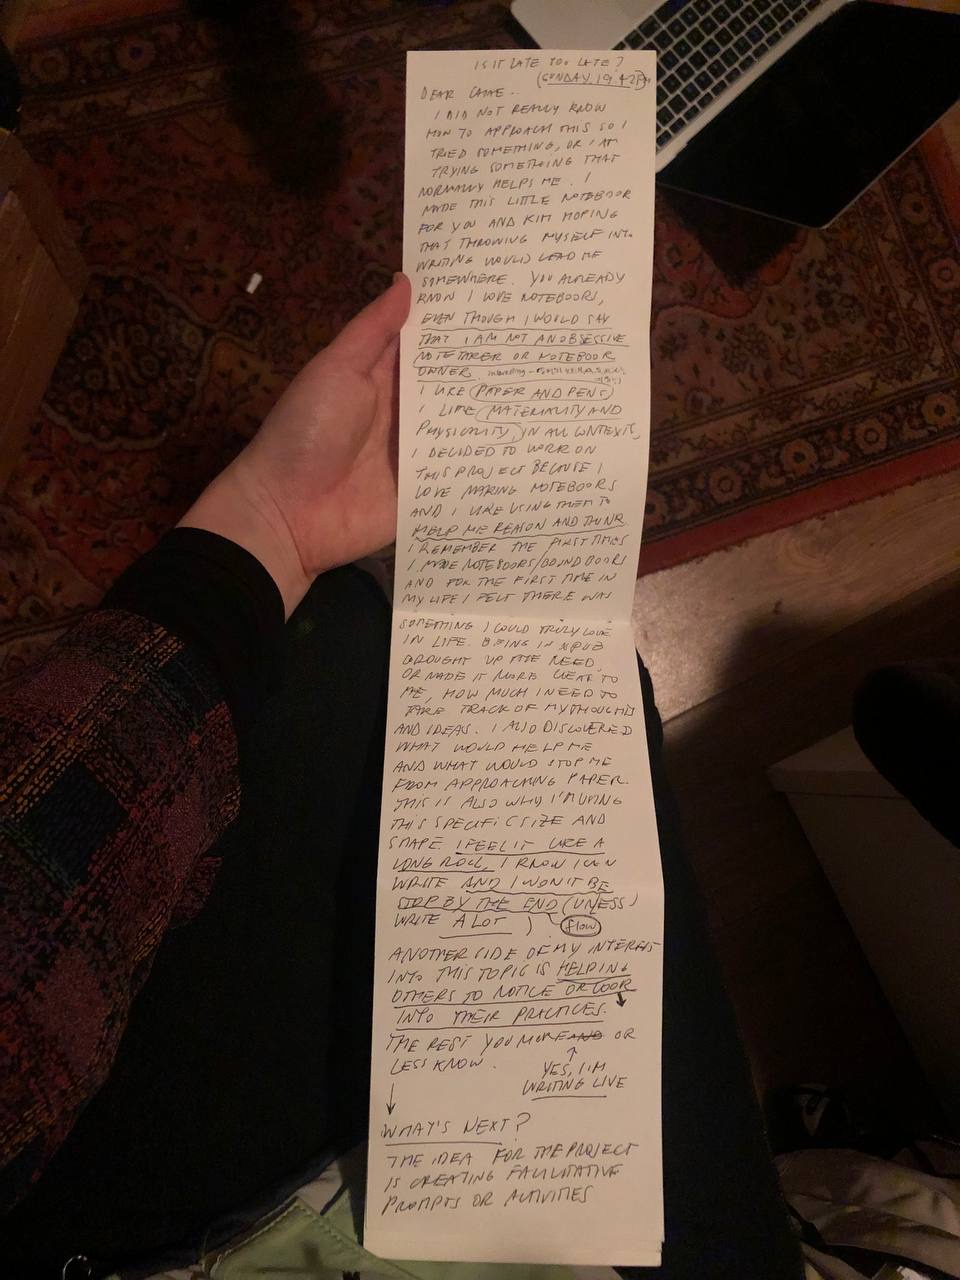 IS IT LATE TO. LATE?
(SUNDAY, 19.42PM)
DEAR CAMÉ..
I DID NOT REALLY KNOW
HOW TO APPROACH THIS SO I
TRIED SOMETHING, OR I AM
TRYING SOMETHING THAT
NORMALLY HELPS ME. I
MADE THIS LITTLE NOTEBOOK
FOR YOU AND KIM HOPING
THAT THROWING MYSELF INTO
WRITING WOULD LEAD ME
SOMEWHERE. YOU ALREADY
KNOW I LOVE NOTEBOOKS,
EVEN THOUGH WOULD SAY
THAT I AM NOT AN OBSESSIVE
NOTETAKER OR NOTEBOOK
OWNER
I LIKE (PAPER AND PENS)
I LIKE (MATERIALITY AND
PHYSICALITY) IN ALL CONTEXTS,
I DECIDED TO WORK ON
THIS PROJECT BECAUSE I
LOVE MAKING NOTEBOOKS
AND I LIKE USING THEM TO
HELP ME REASON AND THINK
I REMEMBER THE FIRST TIMES
I MADE NOTEBOOKS/BOUND BOOKS
AND FOR THE FIRST TIME IN
MY LIFE I FELT THERE WAS
SOMETHING I COULD TRULY
IN LIFE. BEING IN XPUB
BROUGHT UP THE NEED,
OR MADE IT MORE CLEAR TO
ME HOW MUCH I NEED TO
TAKE TRACK OF MY THOUGHTS
AND IDEAS. I ALSO DISCOVERED
WHAT WOULD HELP ME
AND WHAT WOULD STOP ME
FROM APPROACHING PAPER.
THIS ALSO WHY I'M USING
THIS SPECIFIC SIZE AND
SHAPE. I FEEL IT LIKE A
LONG ROLL I KNOW I CAN
WRITE AND I WON'T BE
BY THE END (UNLESS I
WRITE A LOT)
FLOW
ANOTHER SIDE OF MY INTEREST
INTO THIS TOPIC IS HELPING
OTHERS TO NOTICE OR LOOK
INTO THEIR PRACTICES.
THE BEST YOU OR
LESS KNOW. YES, I'M
WRITING LIVE
WHAT'S NEXT?
THE IDEA FOR THE PROJECT
IS CREATING FACILITATIVE
PROMPTS OR ACTIVITIES